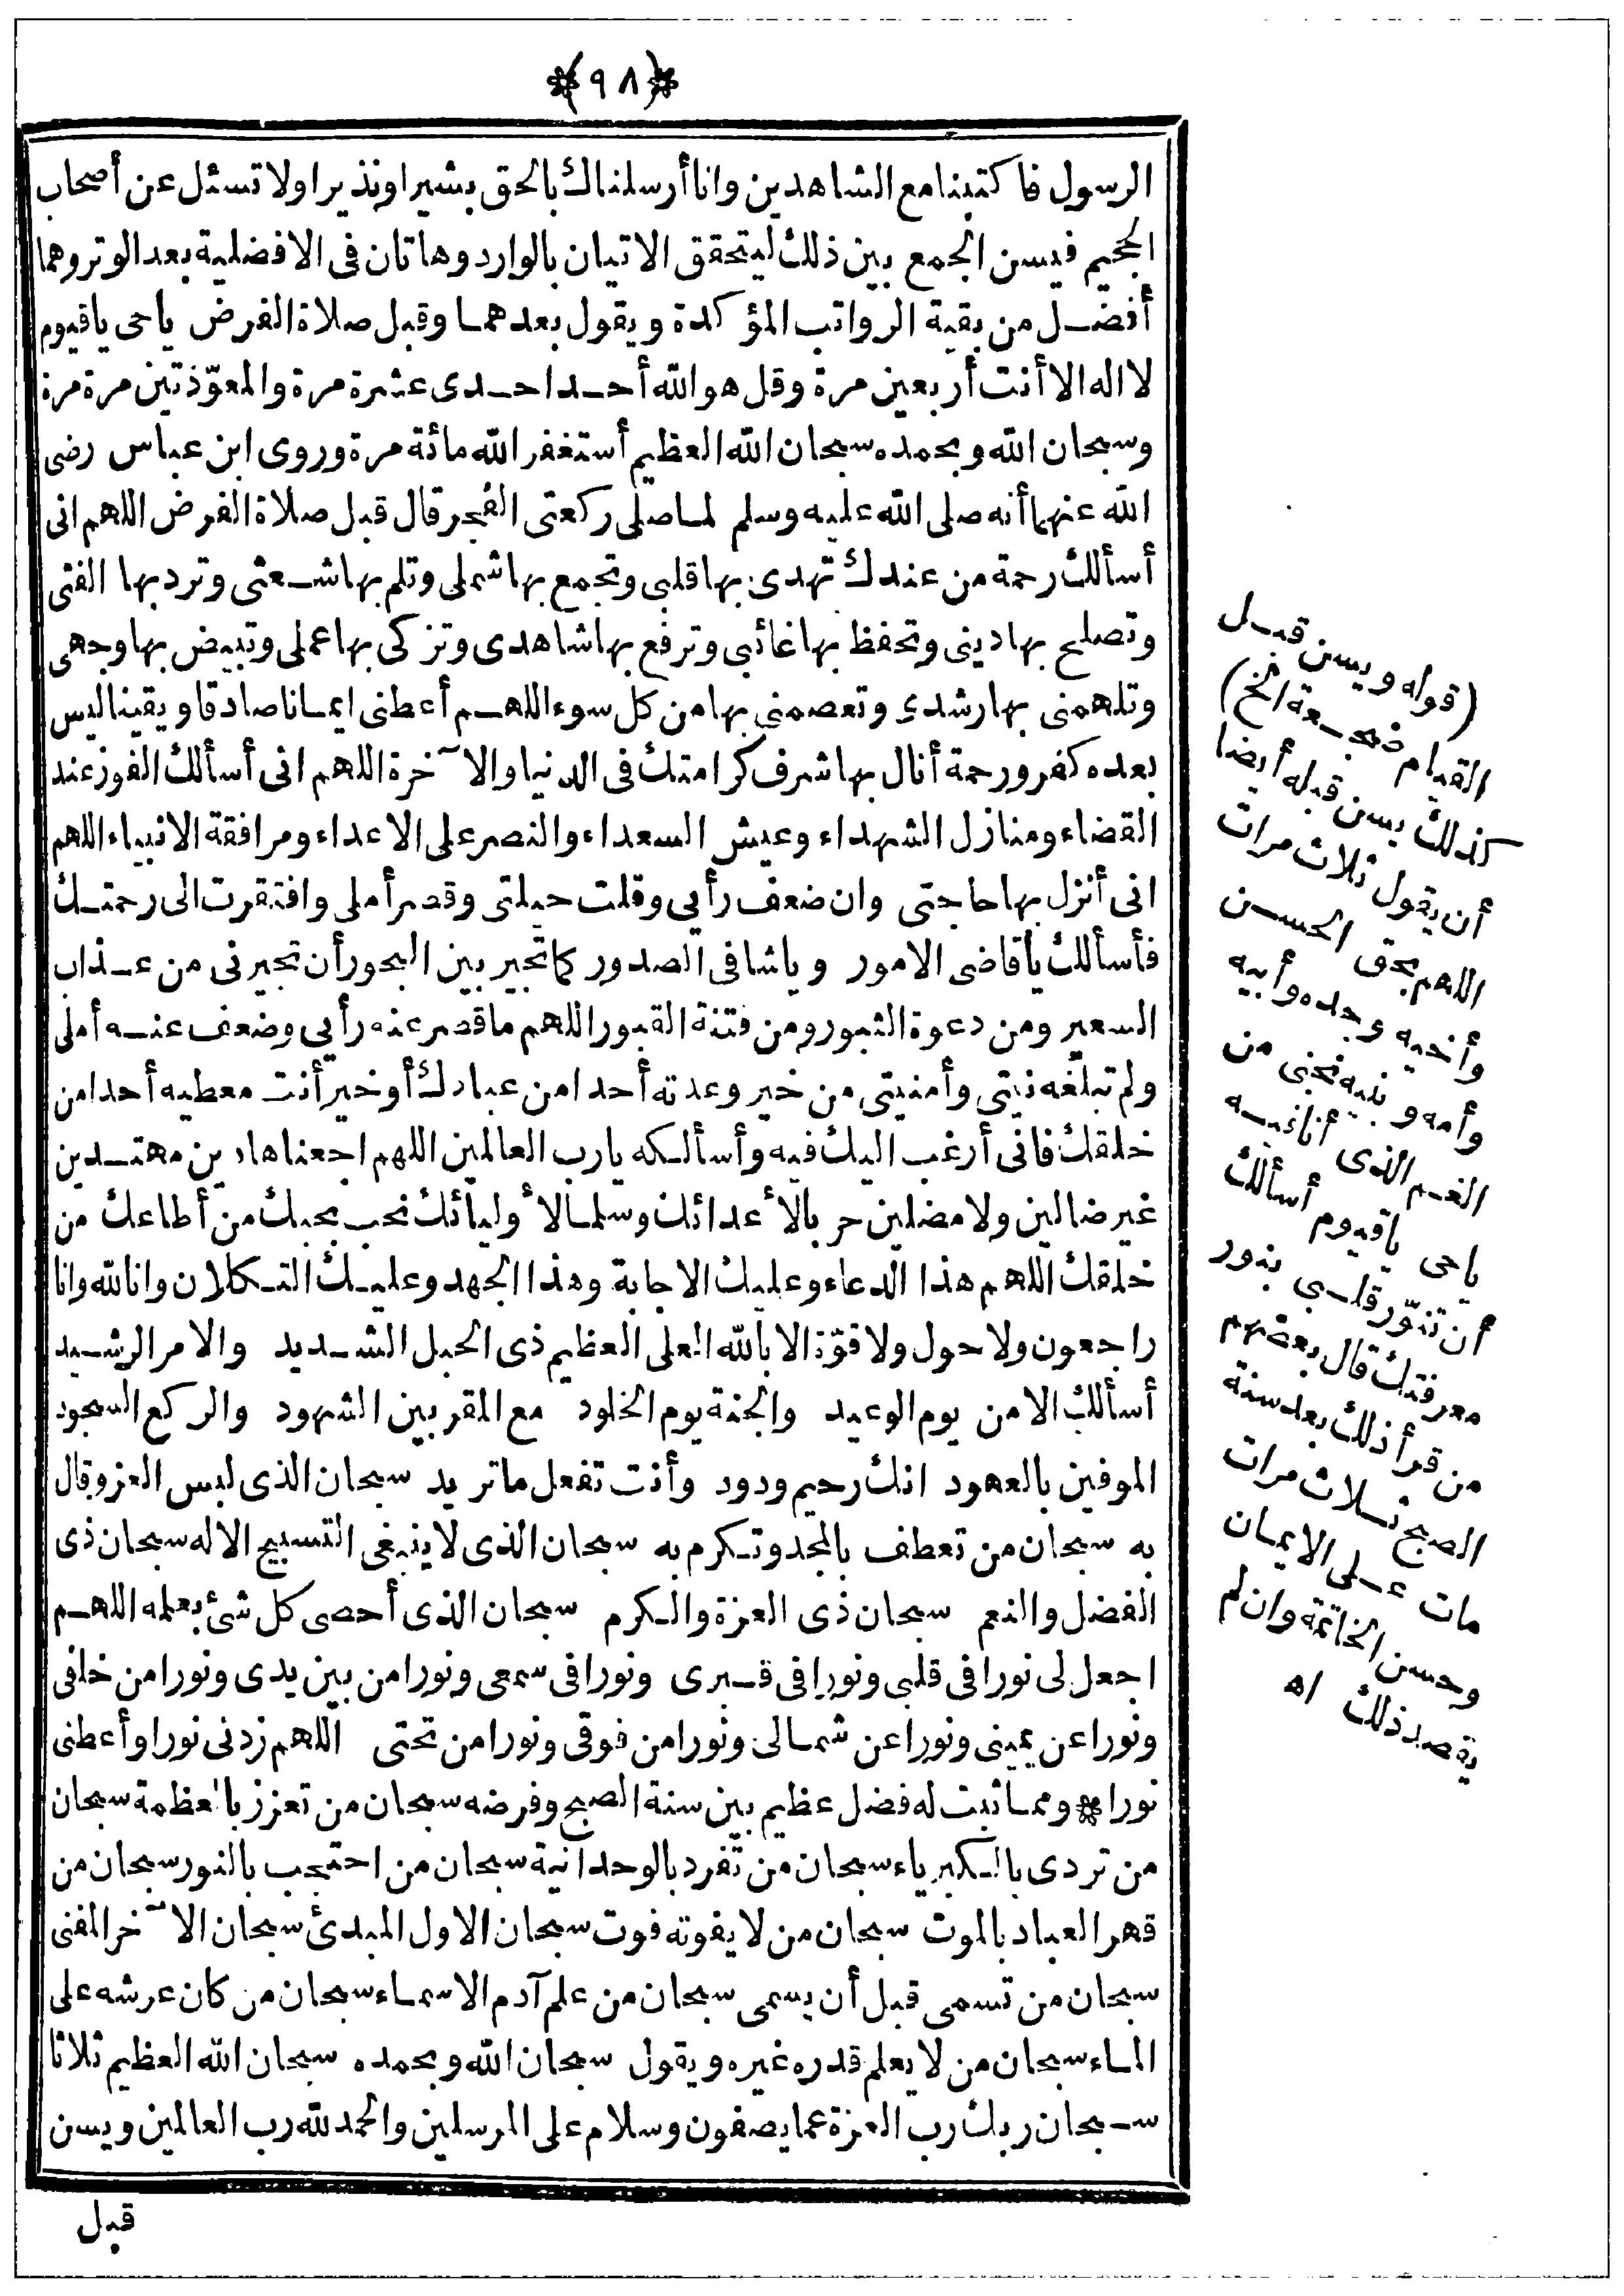 ﴿٩٨﴾
الرسول فاكتبنا مع الشاهدين وانا أرسلناك بالحق بشيرا ونذيرا ولا تسئل عن أصحاب
الجحيم فيسن الجمع بين ذلك ليتحقق الاتيان بالوارد وهاتان في الافضلية بعد الوتر وهما
أفضل من بقية الرواتب المؤكدة ويقول بعدهما وقبل صلاة الفرض ياحى ياقيوم
لا اله الا أنت أربعين مرة وقل هو الله أحد احدى عشرة مرة والمعوّذتين مرة مرة
وسبحان الله وبحمده سبحان الله العظيم أستغفر الله مائة مرة وروى ابن عباس رضى
الله عنهما أنه صلى الله عليه وسلم لما صلى ركعتى الفجر قال قبل صلاة الفرض اللهم انى
أسألك رحمة من عندك تهدى بها قلبى وتجمع بها شملى وتلم بها شعثى وترد بها الفتى
وتصلح بها دينى وتحفظ بها غائبى وترفع بها شاهدى وتزكى بها عملى وتبيض بها وجهى
وتلهمنى بها رشدى وتعصمنى بها من كل سوء اللهم أعطنى ايمانا صادقا ويقينا ليس
بعده كفر ورحمة أنال بها شرف كرامتك فى الدنيا والآخرة اللهم انى أسألك الفوز عند
القضاء ومنازل الشهداء وعيش السعداء والنصر على الاعداء ومرافقة الانبياء اللهم
انى أنزل بها حاجتى وان ضعف رأيى وقلت حيلتى وقصر أملى وافتقرت الى رحمتك
فأسألك يا قاضى الامور وياشافى الصدور كما تجير بين البحور أن تجيرنى من عذاب
السعير ومن دعوة الثبور ومن فتنة القبور اللهم ما قصر عنه رأيى وضعف عنه أملى
ولم تبلغه نيتى وأمنيتى من خير وعدته أحدا من عبادك أو خير أنت معطيه أحدا من
خلقك فانى أرغب اليك فيه وأسألكه يارب العالمين اللهم اجعلنا هادين مهتدين
غير ضالين ولا مضلين حربا لأعدائك وسلما لأوليائك نحب بحبك من أطاعك من
خلقك اللهم هذا الدعاء وعليك الاجابة وهذا الجهد وعليك التكلان وانا لله وانا
راجعون ولا حول ولا قوّة الا بالله العلى العظيم ذى الحبل الشديد والامر الرشيد
أسألك الامن يوم الوعيد والجنة يوم الخلود مع المقربين الشهود والركع السجود
الموفين بالعهود انك رحيم ودود وأنت تفعل ما تريد سبحان الذى لبس العز وقال
به سبحان من تعطف بالمجد وتكرم به سبحان الذى لا ينبغى التسبيح الا له سبحان ذى
الفضل والنعم سبحان ذى العزة والكرم سبحان الذى أحصى كل شئ بعلمه اللهم
اجعل لى نورا فى قلبى ونورا فى قبرى ونورا فى سمعى ونورا من بين يدى ونورا من خلفى
ونورا عن يمينى ونورا عن شمالى ونورا من فوقى ونورا من تحتى اللهم زدنى نورا وأعطنى
نورا * ومما ثبت له فضل عظيم بين سنة الصبح وفرضه سبحان من تعزز بالعظمة سبحان
من تردى بالكبرياء سبحان من تفرد بالوحدانية سبحان من احتجب بالنور سبحان من
قهر العباد بالموت سبحان من لا يفوته فوت سبحان الاول المبدئ سبحان الآخر المفنى
سبحان من تسمى قبل أن يسمى سبحان من علم آدم الاسماء سبحان من كان عرشه على
الماء سبحان من لا يعلم قدره غيره ويقول سبحان الله وبحمده سبحان الله العظيم ثلاثا
سبحان ربك رب العزة عما يصفون وسلام على المرسلين والحمد لله رب العالمين ويسن
قبل
(قوله ويسن قبل
القيام ضجعة الخ)
كذلك يسن قبله أيضا
أن يقول ثلاث مرات
اللهم بحق الحسن
وأخيه وجده وأبيه
وأمه وبنيه نجنى من
الغم الذى أنا فيه
ياحى ياقيوم أسألك
أن تنوّر قلبى بنور
معرفتك قال بعضهم
من قرأ ذلك بعد سنة
الصبح ثلاث مرات
مات على الايمان
وحسن الخاتمة وان لم
يقصد ذلك اه